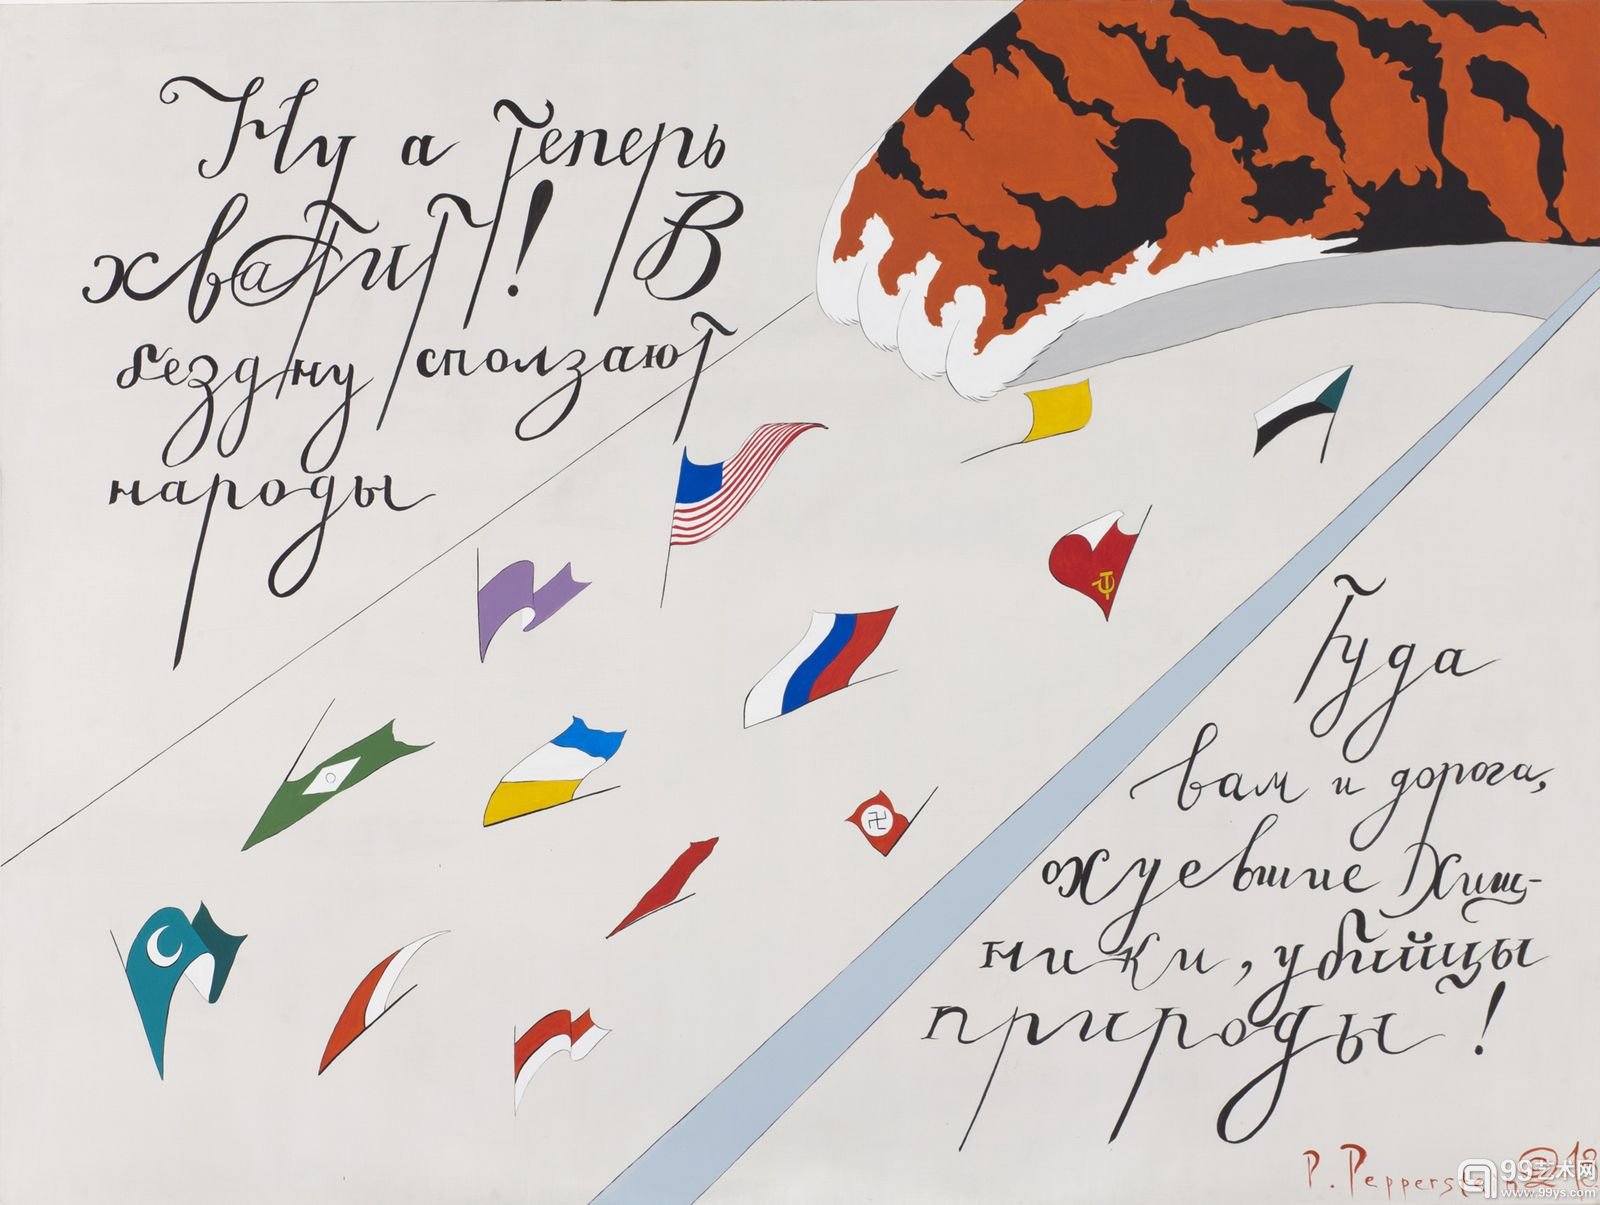 Ну а теперь
хватит! В
бездну сползают
народы
Туда
вам и дорога,
охуевшие хищ-
ники, убийцы
природы!
P. Pepperste
99艺术网
www.99ys.com